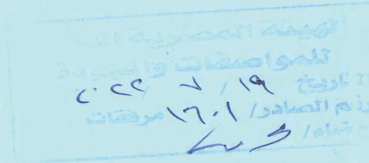 الهيئة المصرية العامة
للمواصفات والجودة
التاريخ ١٩ / ٧ / ٢٠٢٢
رقم الصادر/ ١٦٠١ مرفقات